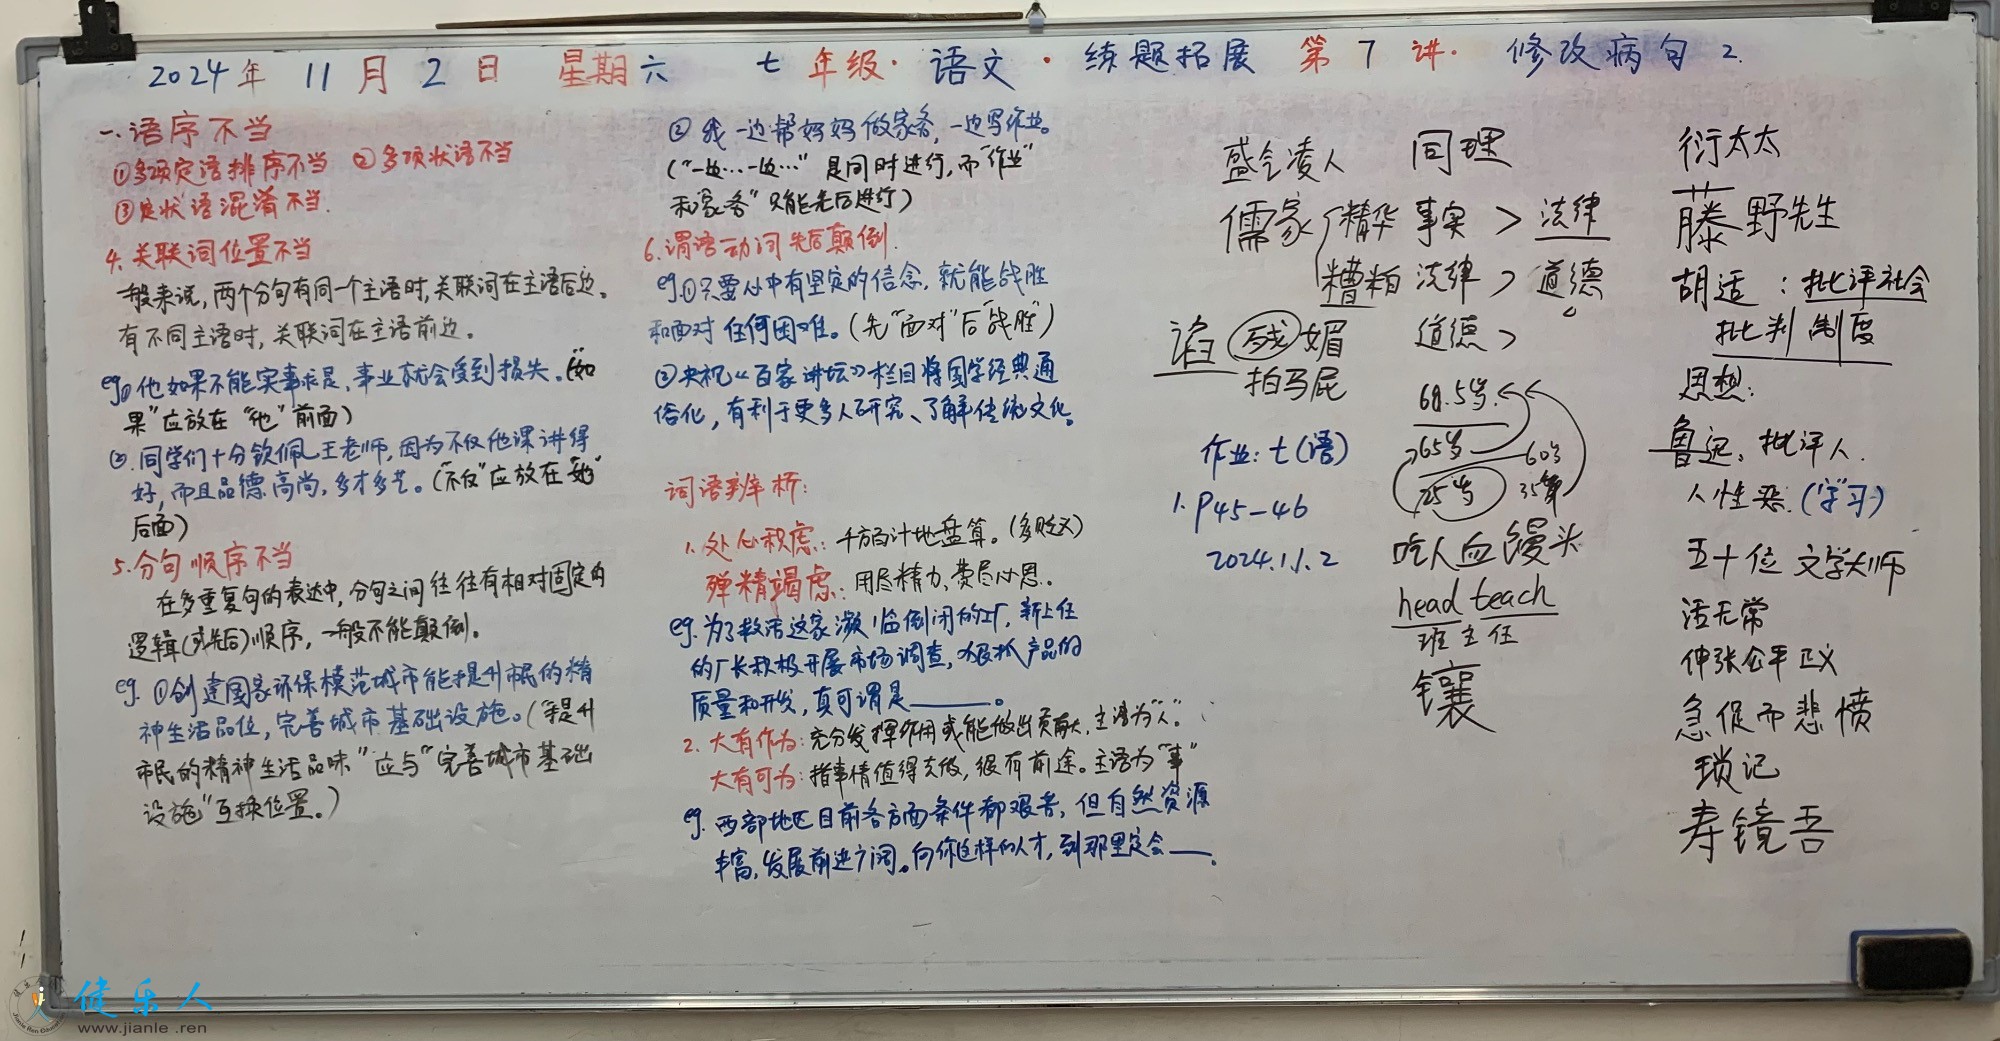 2024年 11月2日 星期六 七年级·语文·练题拓展 第7讲·修改病句2.
一.语序不当
①多项定语排序不当 ②多项状语不当
③定状语混淆不当.
4.关联词位置不当
一般来说,两个分句有同一个主语时,关联词在主语后边。
有不同主语时,关联词在主语前边。
eg①他如果不能实事求是,事业就会受到损失。("如
果"应放在"他"前面)
②.同学们十分钦佩王老师,因为不仅他课讲得
好,而且品德高尚,多才多艺。("不仅"应放在"她"
后面)
5.分句顺序不当
在多重复句的表达中,分句之间往往有相对固定的
逻辑(或先后)顺序,一般不能颠倒。
eg.①创建国家环保模范城市能提升市民的精
神生活品位,完善城市基础设施。("提升
市民的精神生活品味"应与"完善城市基础
设施"互换位置。)
②我一边帮妈妈做家务,一边写作业。
("一边…一边…"是同时进行,而"作业"
和"家务"只能先后进行)
6.谓语动词先后颠倒.
eg.①只要心中有坚定的信念,就能战胜
和面对任何困难。(先"面对"后"战胜")
②央视《百家讲坛》栏目将国学经典通
俗化,有利于更多人研究、了解传统文化。
词语辨析:
1.处心积虑:千方百计地盘算。(多贬义)
殚精竭虑:用尽精力,费尽心思.
eg.为了救活这家濒临倒闭的工厂,新上任
的厂长积极开展市场调查,狠抓产品的
质量和开发,真可谓是____。
2.大有作为:充分发挥作用或能做出贡献,主语为"人"。
大有可为:指事情值得去做,很有前途。主语为"事"
eg.西部地区目前各方面条件都艰苦,但自然资源
丰富,发展前途广阔。向你这样的人才,到那里定会__.
盛气凌人
儒家 精华
糟粕
谄 残 媚
拍马屁
作业:七(语)
1.P45-46
2024.11.2
同理
事实>法律
法律>道德
道德>
68.5岁
65岁 60岁
25岁
吃人血馒头
head teach
班主任
镶
衍太太
藤野先生
胡适:批评社会
批判制度
思想:
鲁迅:批评人.
人性恶.("学"习)
五十位文学大师
活无常
伸张公平正义
急促而悲愤
琐记
寿镜吾
健乐人
www.jianle.ren